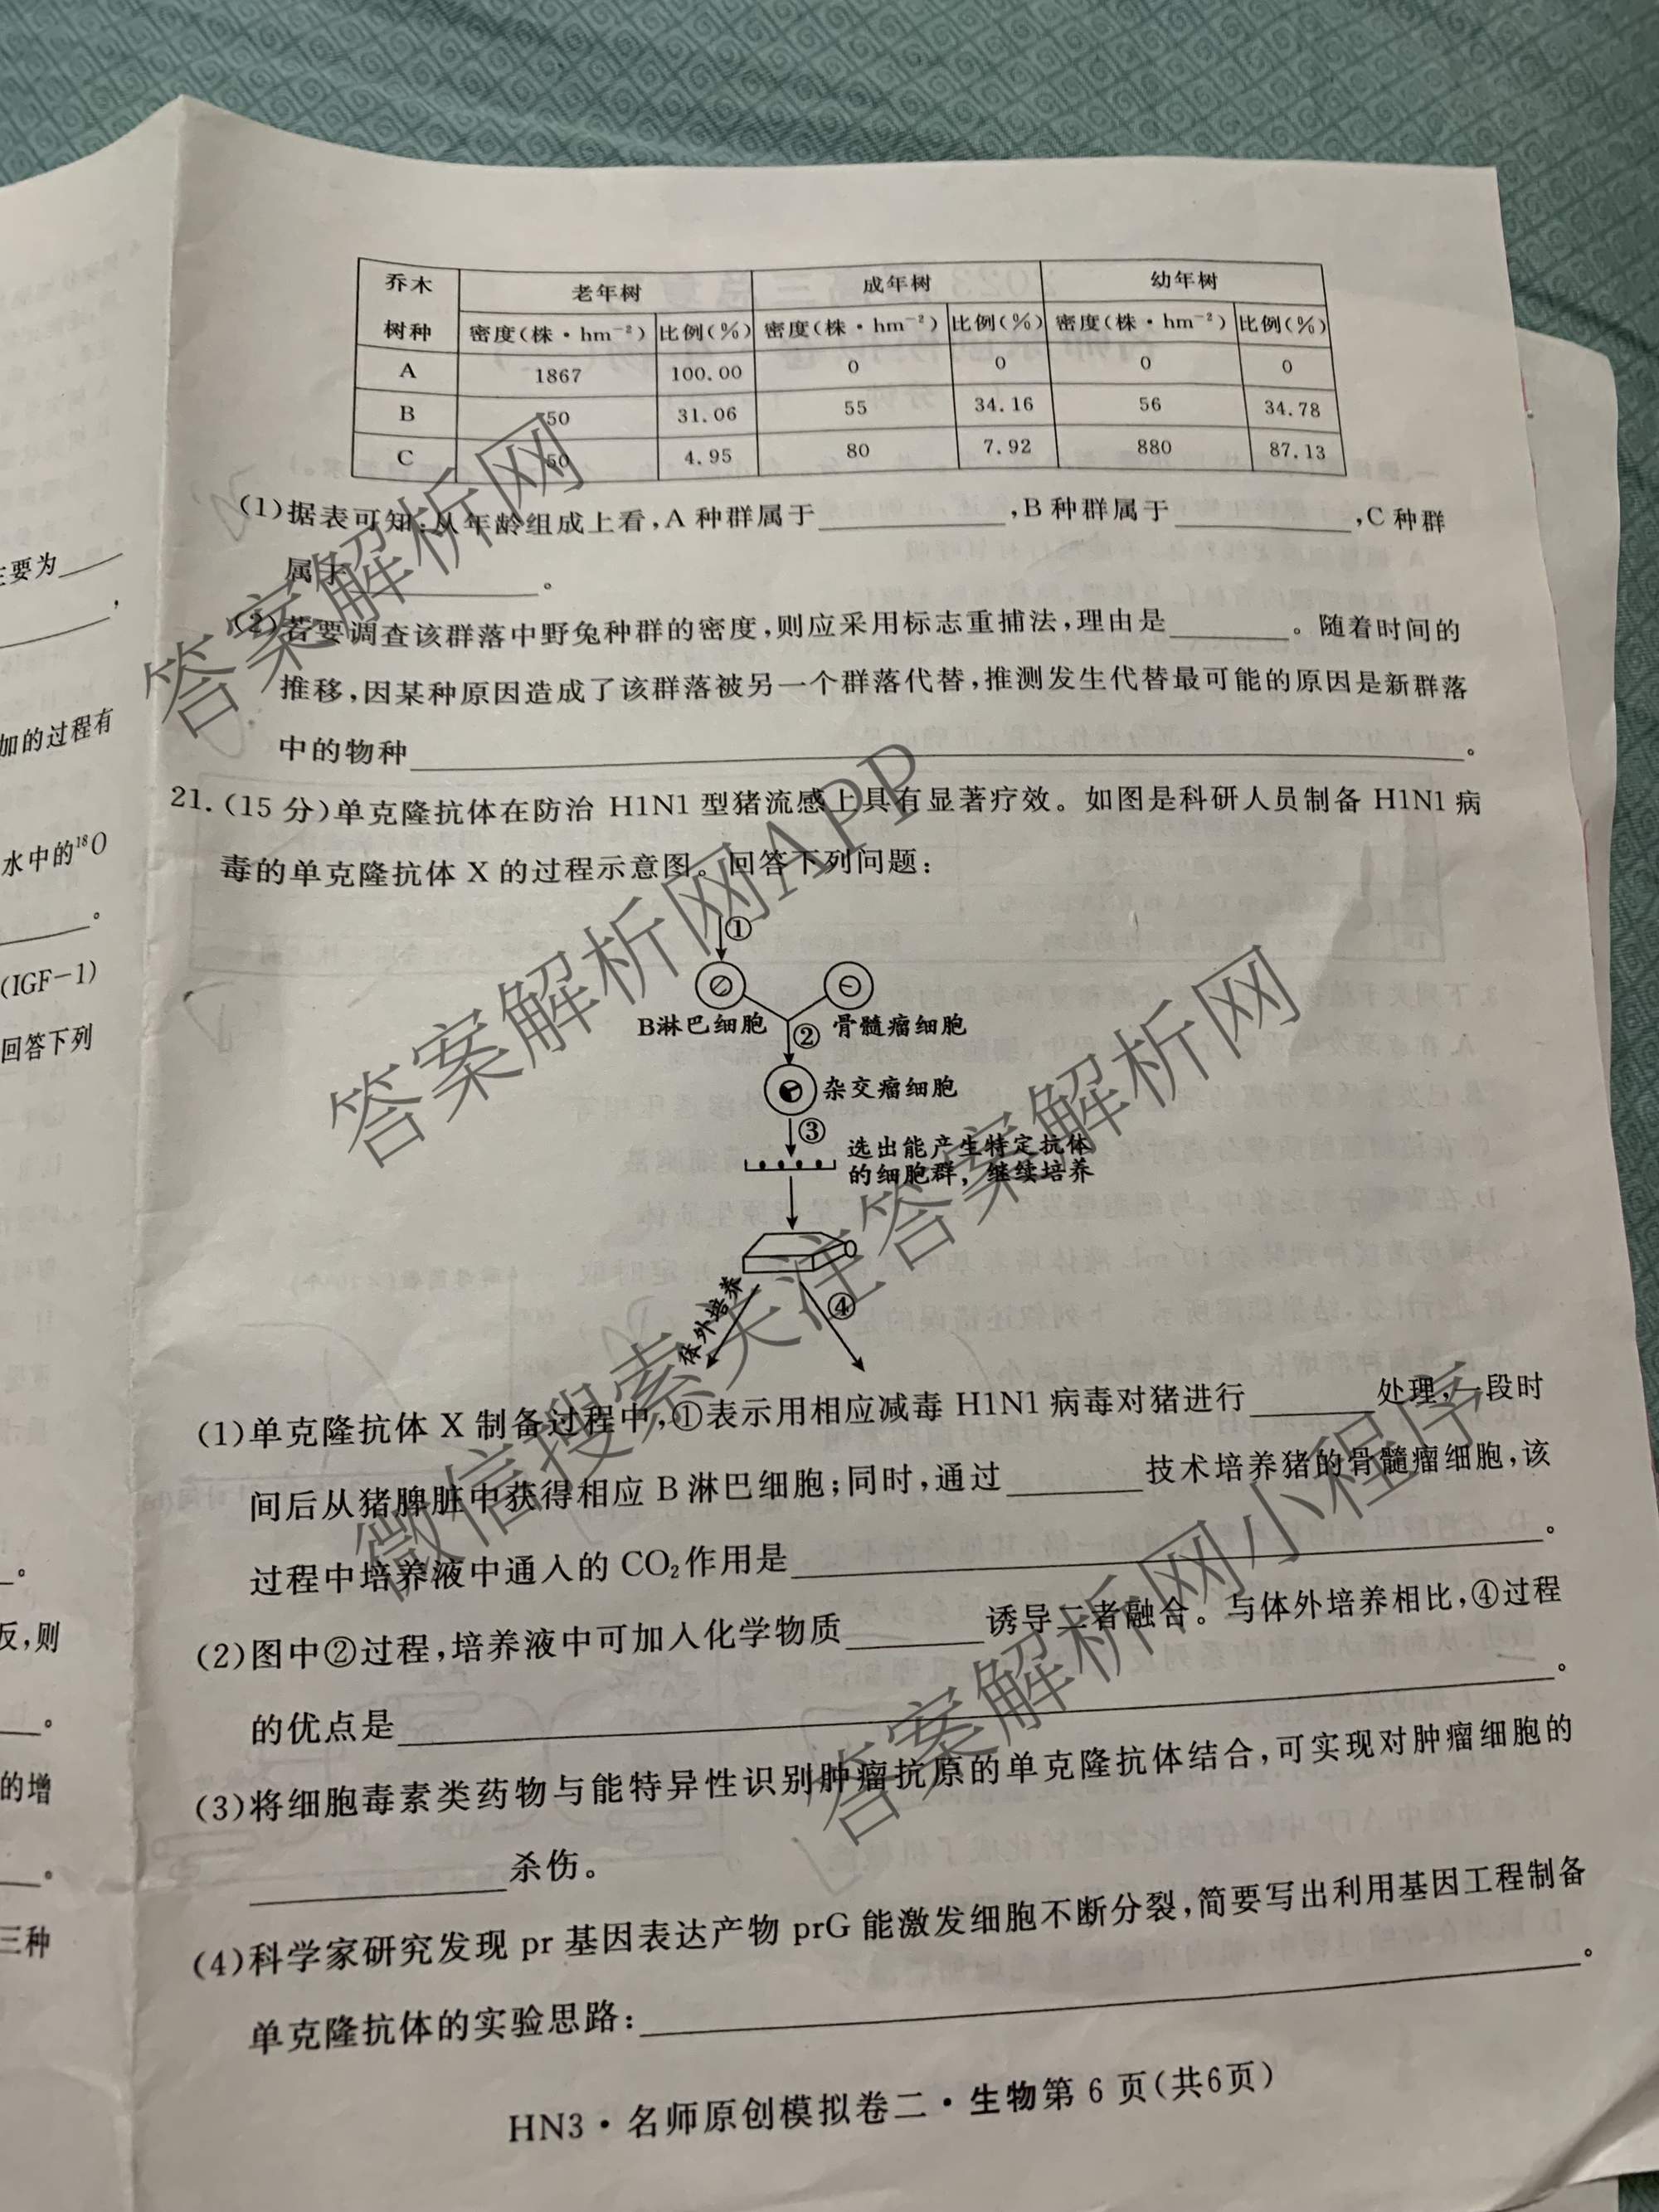 乔木
树种
老年树
成年树
幼年树
密度(株·hm⁻²) 比例(%) 密度(株·hm⁻²) 比例(%) 密度(株·hm⁻²) 比例(%)
A 1867 100.00 0 0 0 0
B 50 31.06 55 34.16 56 34.78
C 50 4.95 80 7.92 880 87.13
(1)据表可知:从年龄组成上看,A种群属于________,B种群属于________,C种群
属于________。
(2)若要调查该群落中野兔种群的密度,则应采用标志重捕法,理由是________。随着时间的
推移,因某种原因造成了该群落被另一个群落代替,推测发生代替最可能的原因是新群落
中的物种________。
21.(15分)单克隆抗体在防治H1N1型猪流感上具有显著疗效。如图是科研人员制备H1N1病
毒的单克隆抗体X的过程示意图。回答下列问题:
①
B淋巴细胞 ② 骨髓瘤细胞
杂交瘤细胞
③
选出能产生特定抗体
的细胞群,继续培养
体外培养 ④
(1)单克隆抗体X制备过程中,①表示用相应减毒H1N1病毒对猪进行________处理,一段时
间后从猪脾脏中获得相应B淋巴细胞;同时,通过________技术培养猪的骨髓瘤细胞,该
过程中培养液中通入的CO₂作用是________。
(2)图中②过程,培养液中可加入化学物质________诱导二者融合。与体外培养相比,④过程
的优点是________。
(3)将细胞毒素类药物与能特异性识别肿瘤抗原的单克隆抗体结合,可实现对肿瘤细胞的
________杀伤。
(4)科学家研究发现pr基因表达产物prG能激发细胞不断分裂,简要写出利用基因工程制备
单克隆抗体的实验思路:________。
HN3·名师原创模拟卷二·生物第6页(共6页)
主要为____
加的过程有
水中的¹⁸O
(IGF-1)
回答下列
反,则
的增
三种
答案解析网
答案解析网APP
微信搜索关注答案解析网
答案解析网小程序